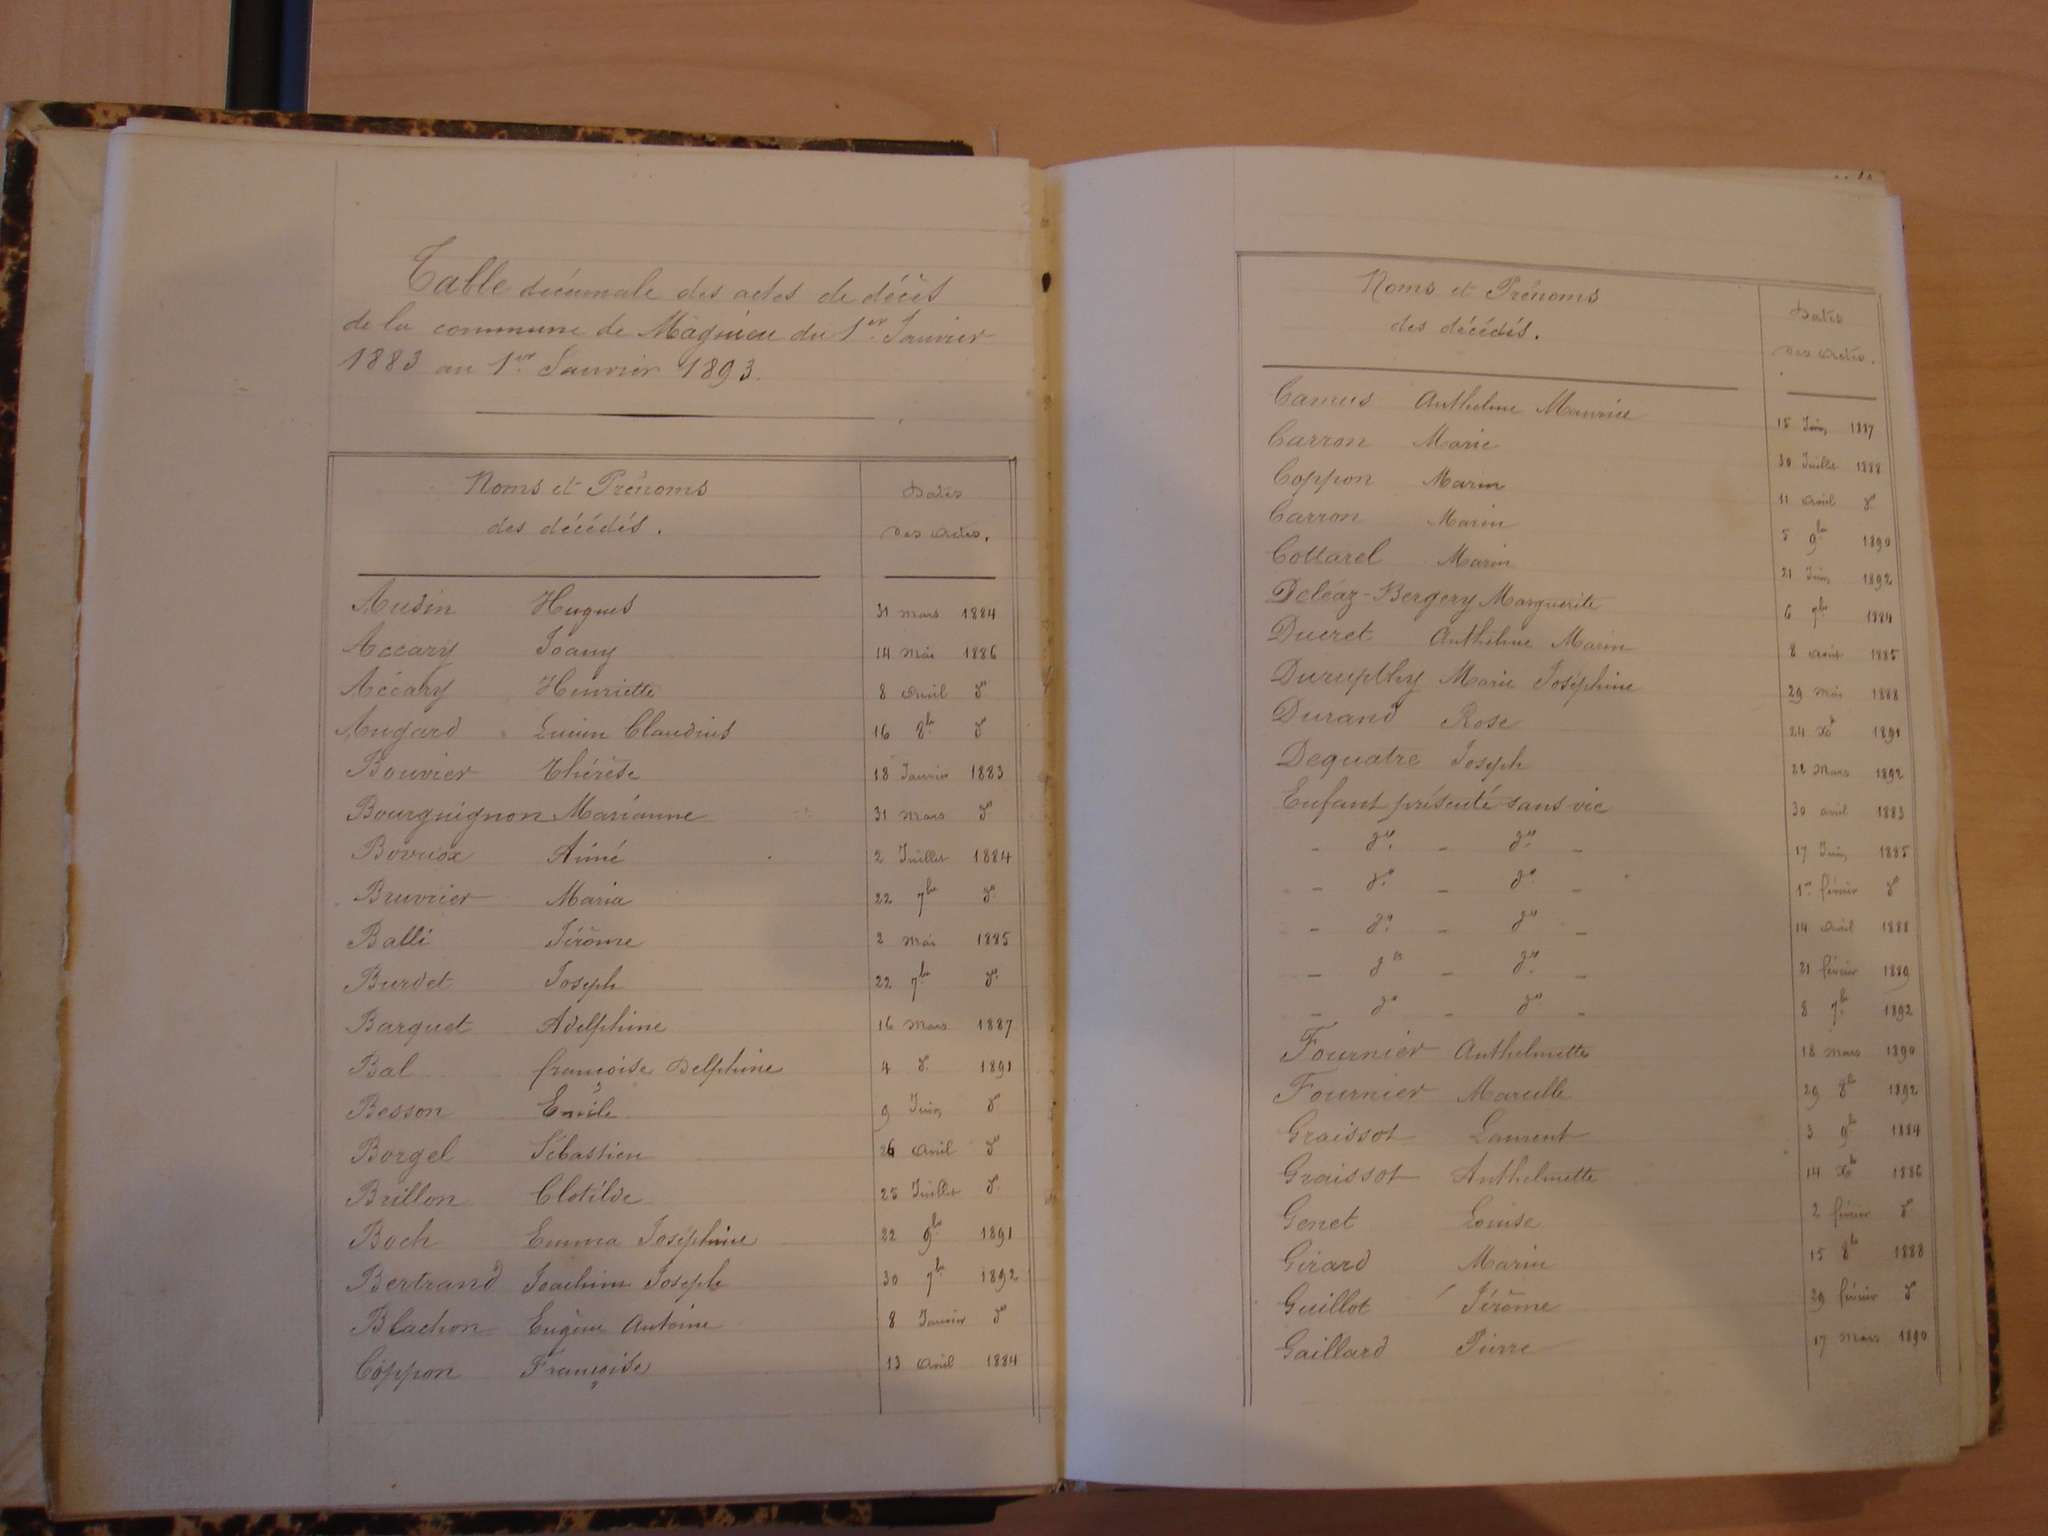 Table décennale des actes de décès
de la commune de Magnieu du 1er Janvier
1883 au 1er Janvier 1893.
Noms et Prénoms
des décédés.
Dates
des actes.
Audin Hugues 31 mars 1884
Accary Joany 14 Mai 1886
Accary Henriette 8 avril do
Augard Lucien Claudius 16 8bre do
Bouvier Thérèse 18 Janvier 1883
Bourguignon Marianne 31 mars do
Bovriox Aimé 2 Juillet 1884
Bruvrier Maria 22 7bre do
Balli Jérôme 2 Mai 1885
Burdet Joseph 22 7bre do
Barquet Adelphine 16 Mars 1887
Bal françoise Delphine 4 do 1891
Besson Emile 9 Juin do
Borgel Sébastien 26 avril do
Brillon Clotilde 25 Juillet do
Boch Emma Joséphine 22 9bre 1891
Bertrand Joachim Joseph 30 7bre 1892
Blachon Eugène Antoine 8 Janvier do
Coppon Françoise 13 avril 1884
Noms et Prénoms
des décédés.
Dates
des actes.
Camus Anthelme Maurice 15 Juin 1887
Carron Marie 30 Juillet 1888
Coppon Marin 11 avril do
Carron Marin 5 9bre 1890
Cottarel Marin 21 Juin 1892
Deléaz-Bergery Marguerite 6 7bre 1884
Ducret Anthelme Marin 8 août 1885
Durupthy Marie Joséphine 29 Mai 1888
Durand Rose 24 Xbre 1891
Dequatre Joseph 22 Mars 1892
Enfant présenté sans vie 30 avril 1883
- do - do - 17 Juin 1885
- do - do - 1er février do
- do - do - 14 avril 1888
- do - do - 21 février 1889
- do - do - 8 7bre 1892
Fournier Anthelmette 18 mars 1890
Fournier Marcelle 29 8bre 1892
Graissot Laurent 3 9bre 1884
Graissot Anthelmette 14 Xbre 1886
Genet Louise 2 février do
Girard Marin 15 8bre 1888
Guillot Jérôme 29 février do
Gaillard Pierre 17 Mars 1890